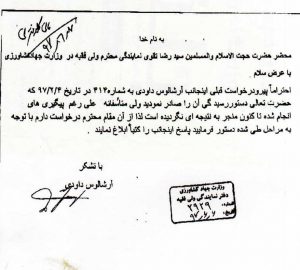 به نام خدا
محضر حضرت حجت الاسلام والمسلمین سید رضا تقوی نمایندگی محترم ولی فقیه در وزارت جهادکشاورزی
با عرض سلام
احتراما پیرودرخواست قبلی اینجانب آرشالوس داودی به شماره ۴۱۲ در تاریخ ۹۷/۲/۴ که
حضرت تعالی دستوررسید گی آن را صادر نمودید ولی متأسفانه علی رغم پیگیری های
انجام شده تا کنون منجر به نتیجه ای نگردیده است لذا از آن مقام محترم درخواست دارم با توجه
به مراحل طی شده دستور فرمایید پاسخ اینجانب را کتباً ابلاغ نمایند
با تشکر
آرشالوس داودی
وزارت جهاد کشاورزی
دفتر نمایندگی ولی فقیه
۲۹۲۹